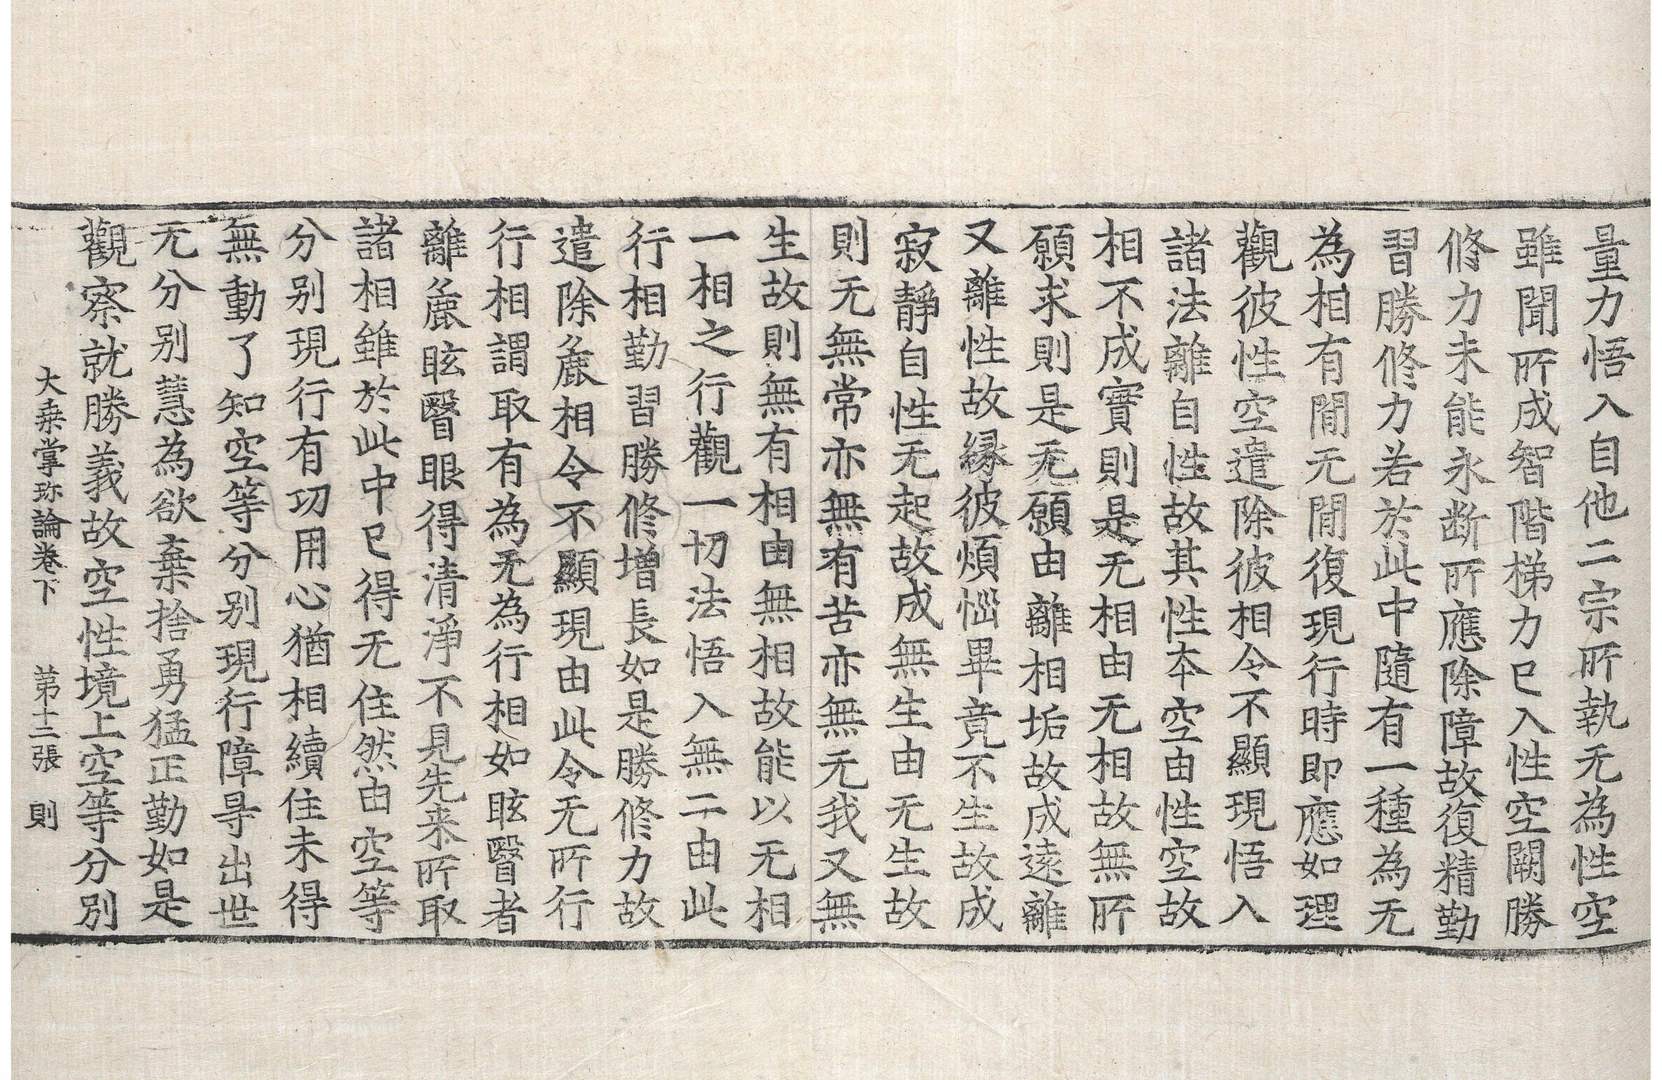 量力悟入自他二宗所執无為性空
雖聞所成智階梯力已入性空闕勝
修力未能永断所應除障故復精勤
習勝修力若於此中隨有一種為无
為相有間无間復現行時即應如理
觀彼性空遣除彼相令不顯現悟入
諸法離自性故其性本空由性空故
相不成實則是无相由无相故無所
願求則是无願由離相垢故成遠離
又離性故縁彼煩惱畢竟不生故成
寂靜自性无起故成無生由无生故
則无無常亦無有苦亦無无我又無
生故則無有相由無相故能以无相
一相之行觀一切法悟入無二由此
行相勤習勝修增長如是勝修力故
遣除麁相令不顯現由此令无所行
行相謂取有為无為行相如眩瞖者
離麁眩瞖眼得清淨不見先来所取
諸相雖於此中已得无住然由空等
分別現行有切用心猶相續住未得
無動了知空等分別現行障㝵出世
无分別慧為欲棄捨勇猛正勤如是
觀察就勝義故空性境上空等分別
大乗掌珎論卷下　第十三張　則